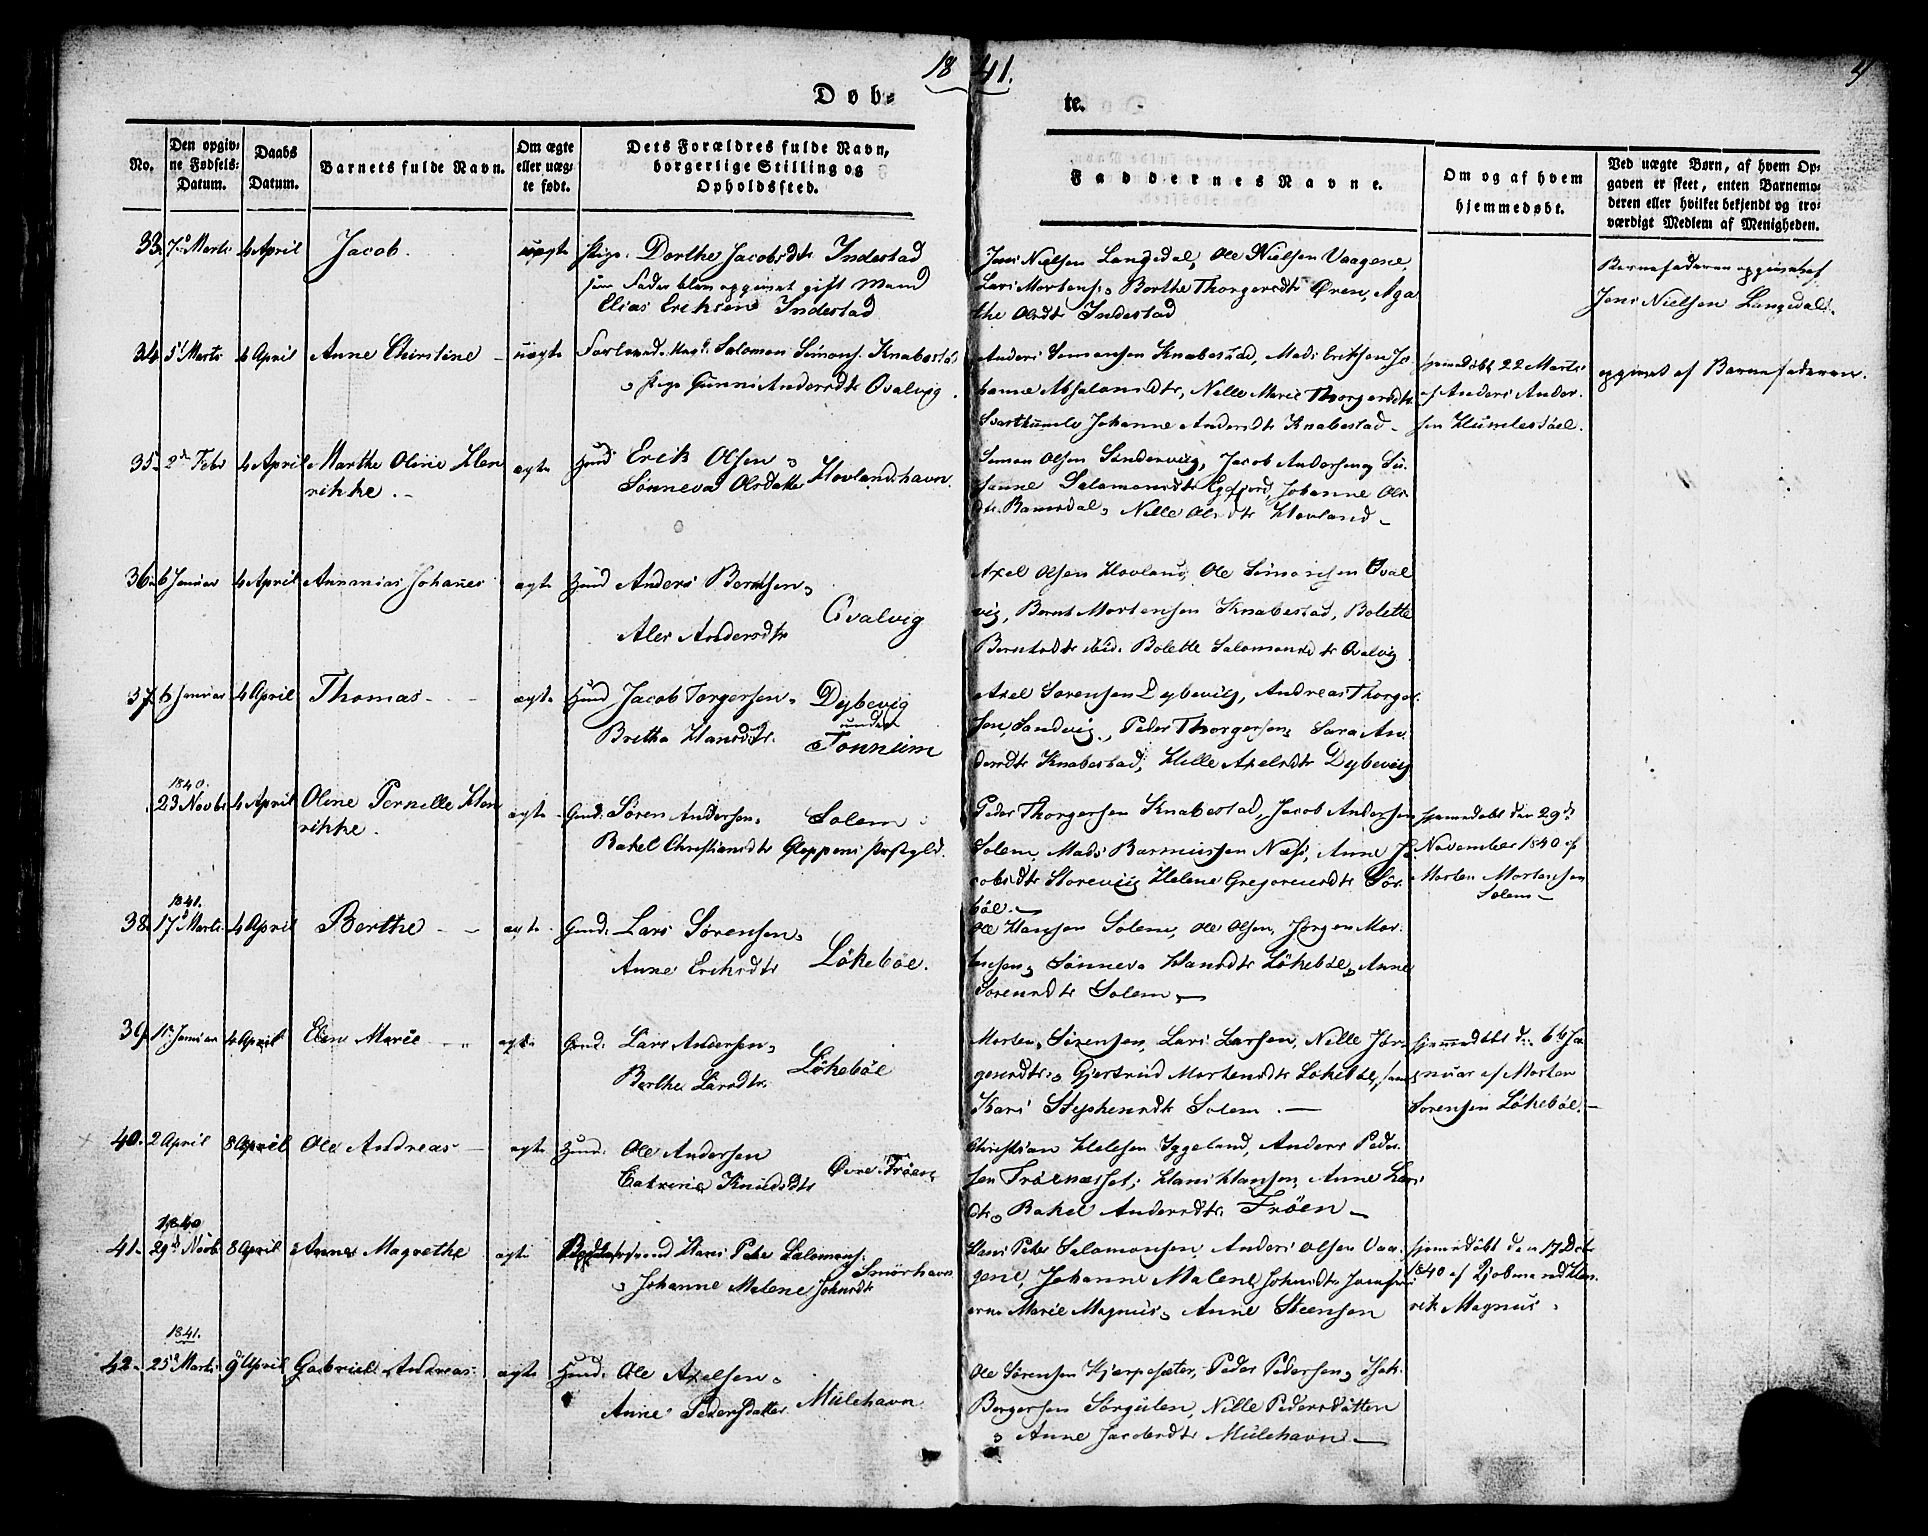 18 41.
Døb- te.
No.
Den opgiv-
ne Fødsels-
Datum.
Daabs
Datum.
Barnets fulde Navn.
Om ægte
eller uæg-
te født.
Dets Forældres fulde Navn,
borgerlige Stilling og
Opholdssted.
Faddernes Navne.
Om og af hvem
hjemmedøbt.
Ved uægte Børn, af hvem Op-
gaven er skeet, enten Barnemo-
deren eller hvilket bekjendt og tro-
værdigt Medlem af Menigheden.
33. 7de Marts 4 April Jacob. uægte Pige. Dorthe Jacobsdtr Indestad
som Fader blev opgivet gift Mand
Elias Eriksen Indestad
Jens Nielsen Langedal, Ole Nielsen Vaagene,
Lars Mortens. Berthe Thorgersdtr Øren, Aga
the Olsdtr Indestad
Barnefaderen opgivet af
Jens Nielsen Langedal.
34. 5te Marts 4 April Anne Christine uægte Salomon Simons. Knabestad
Pige Gunni Andersdtr Qvalvig.
Anders Simensen Knabestad, Mads Eriksen Jo-
hanne Absalonsdtr, Nille Marie Thorgersdtr
Svarthumle Johanne Andersdtr Knabestad
hjemdøbt 22 Marts
af Anders Ander-
sen Humlesøel.
opgivet af Barnefaderen.
35. 2de Febr 4 April Marthe Oline Hen
rikke. ægte Huusmd Erik Olsen
Sønneva Olsdatter Hovlandshavn.
Simon Olsen Sandervig, Jacob Andersen, Su-
sanne Salamonsdtr Egefjord, Johanne Ols
dtr. Ramsdal, Nille Olsdtr Hovland
36. 6 Januar 4 April Annanias Johanes ægte Huusmd Anders Berntsen
Ales Andersdtr Qvalvig
Axel Olsen Hovland, Ole Simonsen Qval
vig, Bernt Mortensen Knabestad, Bolette
Berntsdtr ibid. Bolette Salomonsdtr Qvalvig
37. 6 Januar 4 April Thomas ægte Huusmd Jacob Torgersen
Bretha Hansdtr. Dybevig
under
Tonheim
Axel Sørensen Dybevig, Andreas Thorger-
sen Sandvig, Peder Thorgersen, Sara An-
dersdtr Knabestad, Helle Axelsdtr Dybevig
1840.
23 Novbr 4 April Oline Pernille Hen
rikke. ægte Gmd. Søren Andersen Solem
Rakel Christiansdtr Gloppens Præstgld.
Peder Thorgersen Knabestad, Jacob Andersen
Solem, Mads Rasmussen Næss, Anne Ja-
cobsdtr Storevig, Helene Gregoriusdtr Sør-
bøe.
hjemmedøbt den 29de
November 1840 af
Morten Mortensen
Solem
1841.
38. 17de Marts 4 April Berthe ægte Gmd. Lars Sørensen
Anne Eriksdtr Løkebøe.
Ole Hansen Solem, Ole Olsen, Jørgen Mor-
tensen, Sønneva Hansdtr Løkebøe, Anne
Sorensdtr Solem
39. 1ste Januar 4 April Elen Marie ægte Gmd. Lars Andersen
Berthe Larsdtr. Løkebøe
Morten Sørensen, Lars Larsen, Nille Jør-
gensdtr, Gjertrud Mortensdtr Løkebøe, samt
Kari Stephensdtr Solem.
hjemmedøbt d. 6te Ja
nuar af Morten
Sorensen Løkebøe.
40. 2 April 8 April Ole Andreas ægte Huusmd. Ole Andersen
Catrine Knudsdtr Øvre Frøen
Christian Helesen Iggeland, Anders Peder-
sen Frøenæsset, Hans Hansen, Anne Lars
dtr, Rakel Andersdtr Frøen
1840
41. 29de Novb. 8 April Anne Magrethe ægte Hans Peter Salomons.
Johanne Malene Johnsdtr Smørhavn
Hans Peter Salamonsen, Anders Olsen Vaa-
gene, Johanne Malene Johnsdtr
Marie Magnus, Anne Steensen
hjemmedøbt den 17 Dcbr
1840 af Kjøbmand Hen-
rik Magnus
1841.
42. 25de Marts 9de April Gabriel Andreas ægte Huusmd. Ole Axelsen
Anne Pedersdatter Mulehavn
Ole Sørensen Kjerpesæter, Peder Pedersen, Isak
Borgersen Sørgulen, Nille Pedersdatter
Anne Jacobsdtr Mulehavn